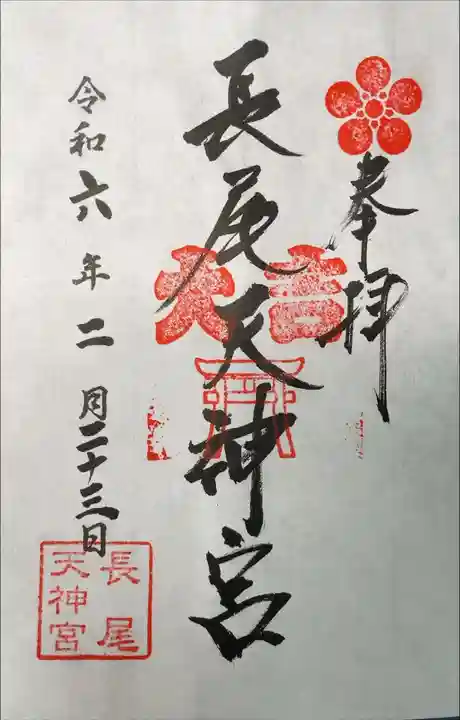 奉拝
大吉
長尾天神宮
令和六年二月二十三日
長尾
天神宮